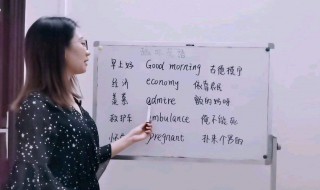 早上好 Good morning 古德
经济 economy 依靠农民
羡慕 admire 额的妈呀
救护车 ambulance 俺不能死
pregnant 扑来个男的